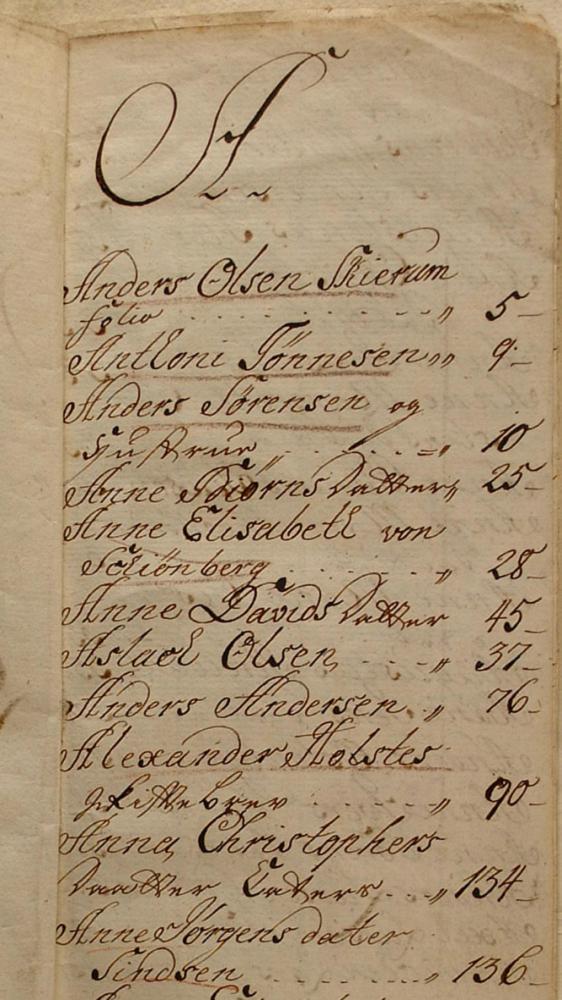 A
Anders Olsen Skierum
folio " 5-
Anthoni Tönnesen " 9-
Anders Sörensen og
Hustrue " 10
Anne Biörns Datter " 25-
Anne Elisabeth von
Schiönberg " 28-
Anne Davids Datter 45-
Aslach Olsen " 37-
Anders Andersen " 76-
Alexander Holstes
Skiftebrev " 90-
Anna Christophers
Daatter " 134-
Anne Jörgens dater
Sindsen " 136-